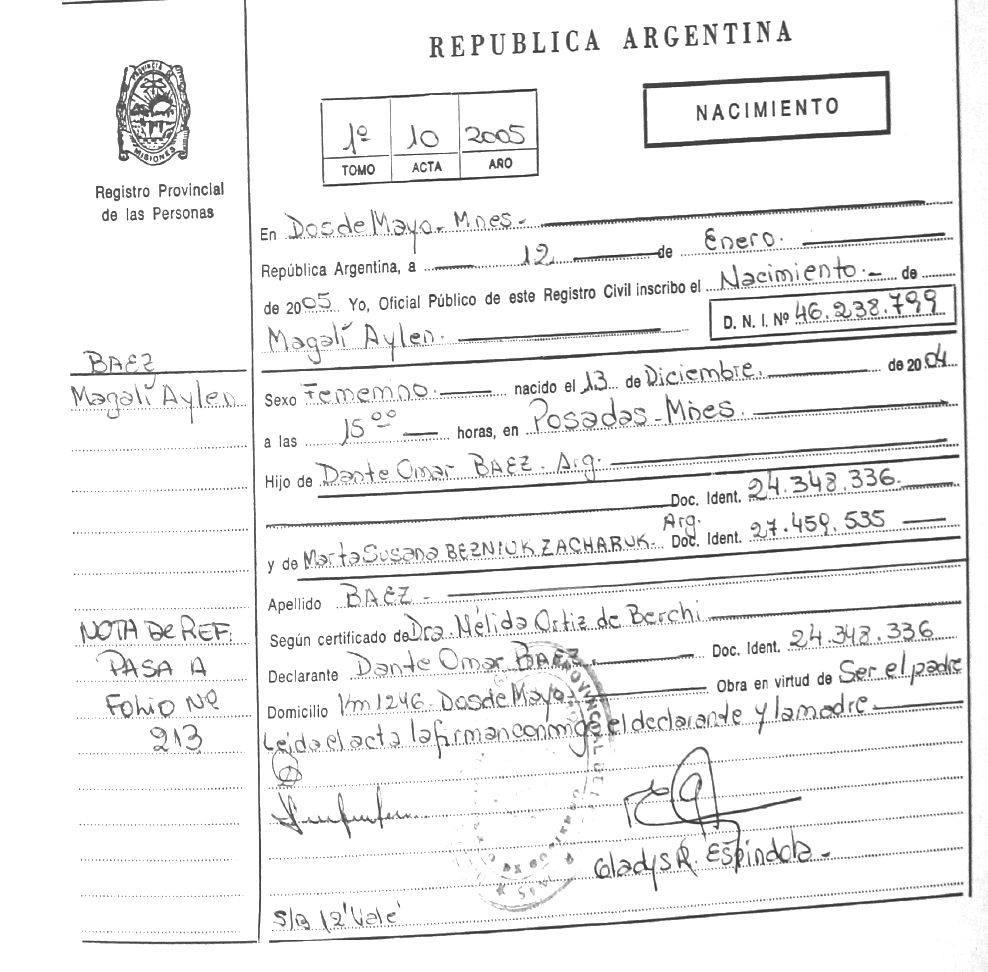 REPUBLICA ARGENTINA
PROVINCIA DE
MISIONES
Registro Provincial
de las Personas
1º 10 2005
TOMO ACTA AÑO
NACIMIENTO
En Dos de Mayo - Mnes -
República Argentina, a 12 de Enero.
de 2005 Yo, Oficial Público de este Registro Civil inscribo el Nacimiento.- de
Magalí Aylen.
D. N. I. Nº 46.238.799
BAEZ
Magalí Aylen
Sexo Femenino. nacido el 13 de Diciembre. de 2004
a las 15 ºº horas, en Posadas - Mnes.
Hijo de Dante Omar BAEZ. Arg.
Doc. Ident. 24.348.336.
y de Marta Susana BEZNIUK ZACHARUK. Arg. Doc. Ident. 27.459.535
Apellido BAEZ -
Según certificado de Dra. Nélida Ortiz de Berchi
Declarante Dante Omar BAEZ. Doc. Ident. 24.348.336
Domicilio Km 1246. Dos de Mayo. Obra en virtud de Ser el padre
Leida el acta la firman conmigo el declarante y la madre.
NOTA DE REF:
PASA A
FOLIO Nº
213
Gladys R. Espindola -
S/B 12 Vale